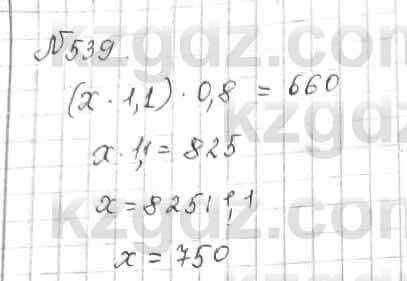 №539.
(x · 1,1) · 0,8 = 660
x · 1,1 = 825
x = 825 : 1,1
x = 750
kzgdz.com
kzgdz.com
kzgdz.com
kzgdz.com